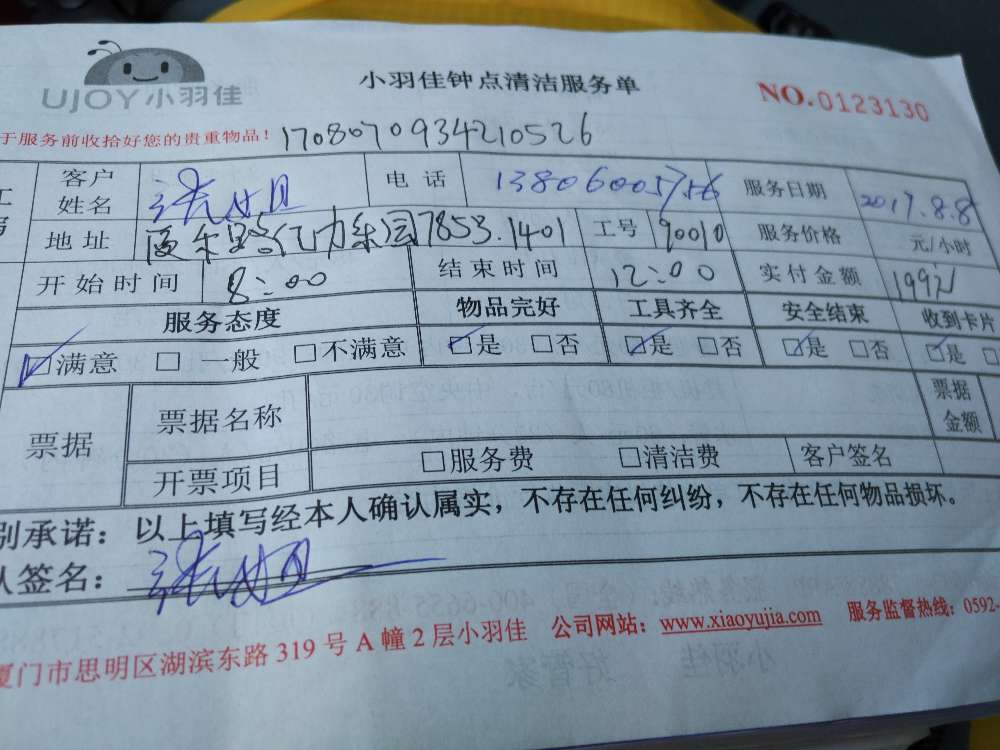 UJOY小羽佳
小羽佳钟点清洁服务单
NO.0123130
于服务前收拾好您的贵重物品！170807093421052​6
客户姓名 电话 13806005756 服务日期 2017.8.8
地址 7853.1401 工号 90010 服务价格 元/小时
开始时间 8:00 结束时间 12:00 实付金额 199元
服务态度 物品完好 工具齐全 安全结束 收到卡片
☑满意 □一般 □不满意 ☑是 □否 ☑是 □否 ☑是 □否 ☑是
票据 票据名称 票据金额
开票项目 □服务费 □清洁费 客户签名
别承诺：以上填写经本人确认属实，不存在任何纠纷，不存在任何物品损坏。
人签名：
厦门市思明区湖滨东路319号A幢2层小羽佳 公司网站：www.xiaoyujia.com 服务监督热线：0592-